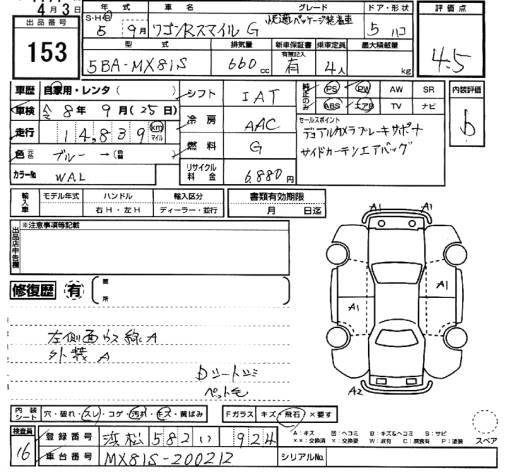 4月3日
出品番号 153
年式 S・H・R 5年 9月
車名 ワゴンRスマイル
グレード G 快適パッケージ装着車
ドア・形状 5 ハコ
評価点 4.5
型式 5BA-MX81S
排気量 660cc
新車保証書 有無記入 有
乗車定員 4人
最大積載量 kg
車歴 自家用・レンタ( )
シフト IAT
純正のみ PS PW AW SR
ABS エアB TV ナビ
内装評価 b
車検 8年 9月(25日)
冷房 AAC
走行 14,839 km マイル
セールスポイント
デュアルカメラブレーキサポート
サイドカーテンエアバッグ
燃料 G
色 元色 ブルー→(色替 )
カラー№ WAL
リサイクル料金 6,880円
輸入車 モデル年式 ハンドル 右H・左H 輸入区分 ディーラー・並行
書類有効期限 月 日迄
出品店申告欄 ※注意事項等記載
修復歴 有 箇所
左側面ガス線A
外装A
Dシートシミ
ペット毛
A1 A1
A1 A1
A2
内装シート 穴・破れ・スレ・コゲ・汚れ・キズ・黄ばみ
Fガラス キズ・飛石・×要す
スペア
A:キズ U:ヘコミ B:キズ&ヘコミ S:サビ
××:交換済 ×:要交換 W:波有 C:腐食有 P:塗装
検査員 16
登録番号 浜松 582 い 924
車台番号 MX81S-200212
シリアル№